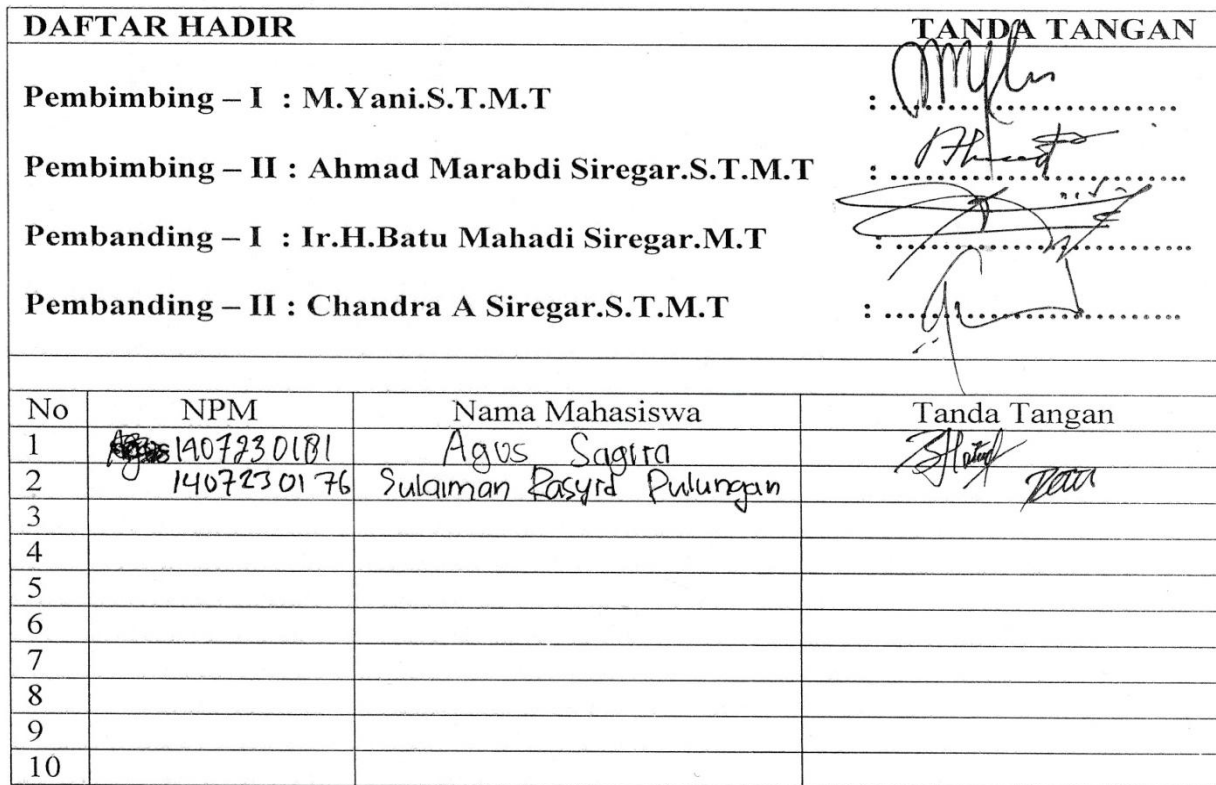 DAFTAR HADIR TANDA TANGAN
Pembimbing – I : M.Yani.S.T.M.T : ..............................
Pembimbing – II : Ahmad Marabdi Siregar.S.T.M.T : ..............................
Pembanding – I : Ir.H.Batu Mahadi Siregar.M.T : ..............................
Pembanding – II : Chandra A Siregar.S.T.M.T : ..............................
No NPM Nama Mahasiswa Tanda Tangan
1 1407230181 Agus Sagira
2 1407230176 Sulaiman Rasyid Pulungan
3
4
5
6
7
8
9
10